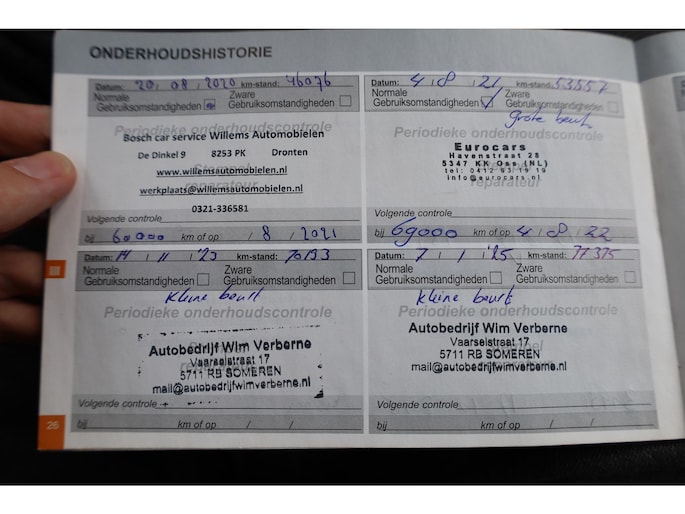 ONDERHOUDSHISTORIE
Datum: 20 / 08 / 2020 km-stand: 46076
Normale Gebruiksomstandigheden
Zware Gebruiksomstandigheden
Periodieke onderhoudscontrole
Bosch car service Willems Automobielen
De Dinkel 9 8253 PK Dronten
www.willemsautomobielen.nl
werkplaats@willemsautomobielen.nl
0321-336581
Volgende controle
bij 60000 km of op / 8 / 2021
Datum: 4 / 8 / 21 km-stand: 53557
Normale Gebruiksomstandigheden
Zware Gebruiksomstandigheden
grote beurt
Periodieke onderhoudscontrole
Eurocars
Havenstraat 28
5347 KK Oss (NL)
tel: 0412 63 19 19
info@eurocars.nl
reparateur
Volgende controle
bij 69000 km of op 4 / 8 / 22
Datum: 14 / 11 / '23 km-stand: 70133
Normale Gebruiksomstandigheden
Zware Gebruiksomstandigheden
kleine beurt
Periodieke onderhoudscontrole
Autobedrijf Wim Verberne
Vaarselstraat 17
5711 RB SOMEREN
mail@autobedrijfwimverberne.nl
Volgende controle
bij km of op / /
Datum: 7 / 1 / '25 km-stand: 77375
Normale Gebruiksomstandigheden
Zware Gebruiksomstandigheden
kleine beurt
Periodieke onderhoudscontrole
Autobedrijf Wim Verberne
Vaarselstraat 17
5711 RB SOMEREN
mail@autobedrijfwimverberne.nl
Volgende controle
bij km of op / /
26